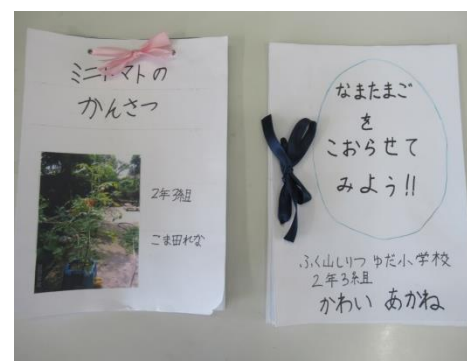 ミニトマトの
かんさつ
2年3組
こま田れな
なまたまご
を
こおらせて
みよう!!
ふく山しりつ ゆだ小学校
2年3組
かわい あかね